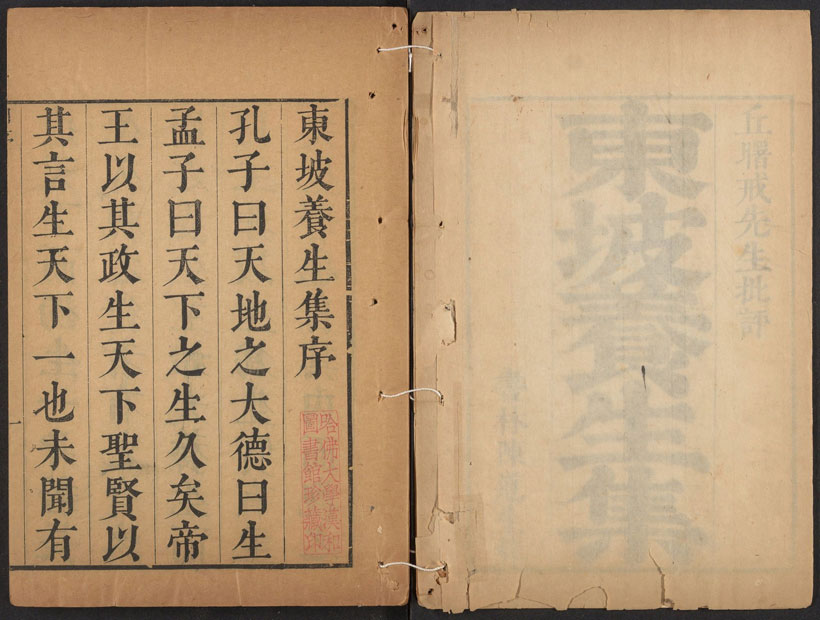 丘曙戒先生批評
東坡養生集
東坡養生集序
哈佛大學漢和
圖書館珍藏印
孔子曰天地之大德曰生
孟子曰天下之生久矣帝
王以其政生天下聖賢以
其言生天下一也未聞有
一